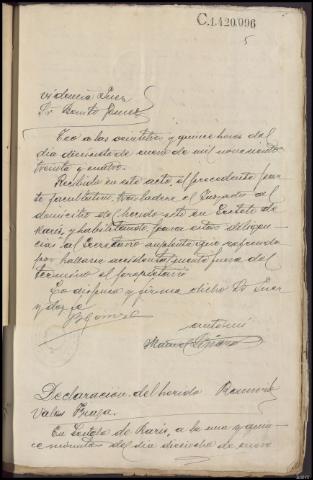 C.1.420.096
5
Providencia Juez
Sr Benito Gomez
Teo a las veintitres y quince horas del
dia dieciocho de enero de mil novecientos
treinta y cuatro.
Recibido en este acto, el precedente par-
te facultativo, trasladese el Juzgado al
domicilio del herido sito en Sestelo de
Baris, y habilitandose para estas diligen-
cias al Secretario suplente que refrenda
por hallarse accidentalmente fuera del
termino el propietario
Lo dispuso y firma dicho Sr Juez
y doy fe
B Gomez
ante mi
Manuel
Declaracion del herido
Vales Braga.
En Sestelo de Baris, a la una y quin-
ce minutos del dia dieciocho de enero